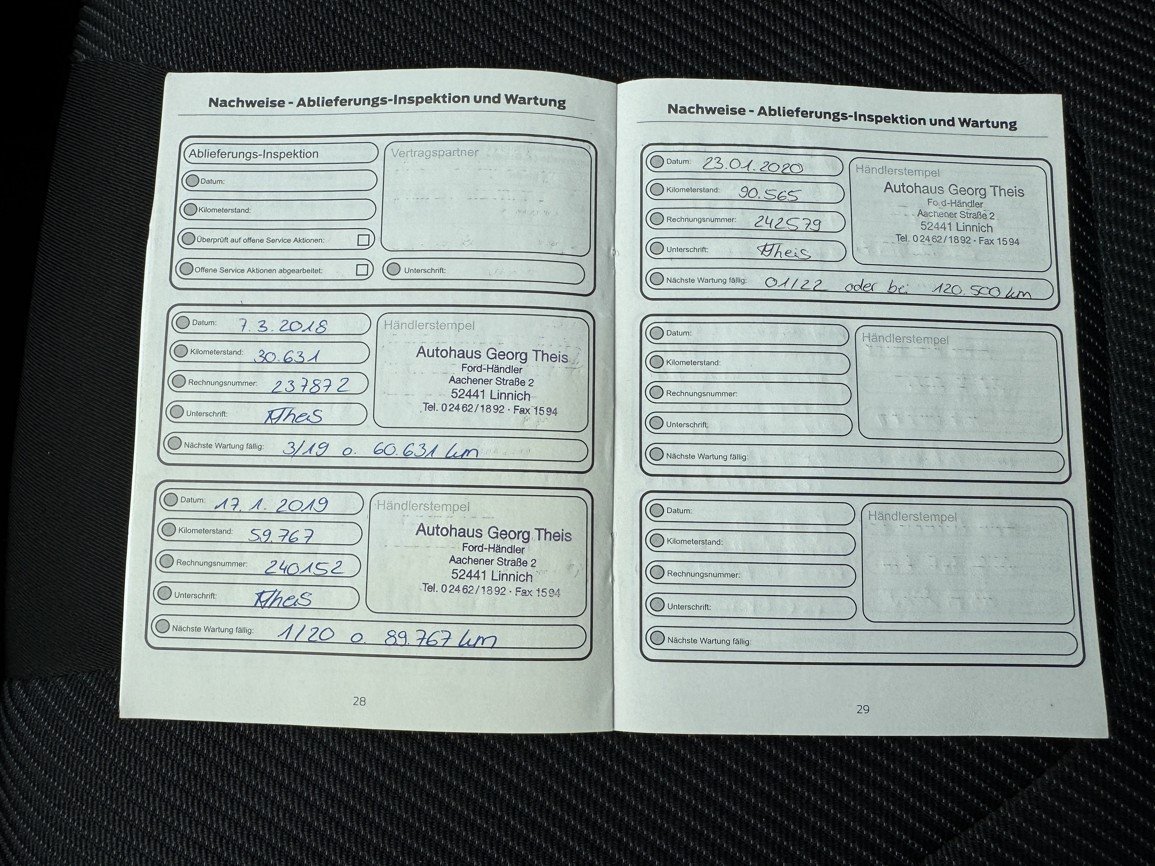 Nachweise - Ablieferungs-Inspektion und Wartung
Ablieferungs-Inspektion
Vertragspartner
Datum:
Kilometerstand:
Überprüft auf offene Service Aktionen:
Offene Service Aktionen abgearbeitet:
Unterschrift:
Datum: 7.3.2018
Kilometerstand: 30.631
Rechnungsnummer: 237872
Unterschrift: Theis
Nächste Wartung fällig: 3/19 o. 60.631 km
Händlerstempel
Autohaus Georg Theis
Ford-Händler
Aachener Straße 2
52441 Linnich
Tel. 02462/1892 · Fax 1594
Datum: 17.1.2019
Kilometerstand: 59.767
Rechnungsnummer: 240152
Unterschrift: Theis
Nächste Wartung fällig: 1/20 o. 89.767 km
Händlerstempel
Autohaus Georg Theis
Ford-Händler
Aachener Straße 2
52441 Linnich
Tel. 02462/1892 · Fax 1594
28
Nachweise - Ablieferungs-Inspektion und Wartung
Datum: 23.01.2020
Kilometerstand: 90.565
Rechnungsnummer: 242579
Unterschrift: Theis
Nächste Wartung fällig: 01/22 oder bei 120.500 km
Händlerstempel
Autohaus Georg Theis
Ford-Händler
Aachener Straße 2
52441 Linnich
Tel. 02462/1892 · Fax 1594
Datum:
Kilometerstand:
Rechnungsnummer:
Unterschrift:
Nächste Wartung fällig:
Händlerstempel
Datum:
Kilometerstand:
Rechnungsnummer:
Unterschrift:
Nächste Wartung fällig:
Händlerstempel
29